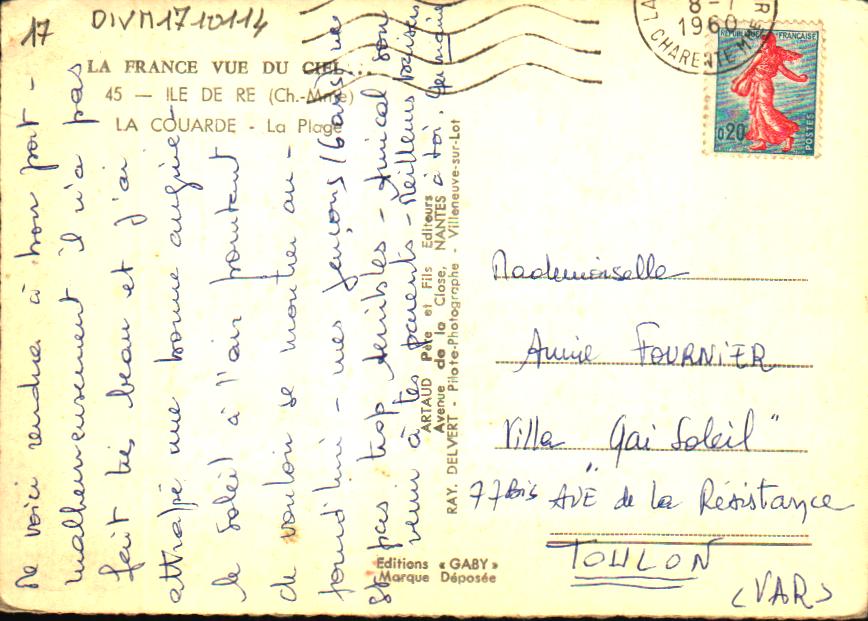 17
DIVM1710114
LA FRANCE VUE DU CIEL...
45 — ILE DE RE (Ch.-Mme)
LA COUARDE - La Plage
Me voici rendue à bon port -
malheureusement il n'a pas
fait très beau et j'ai
attrapé une bonne angine
le soleil à l'air pourtant
de vouloir se montrer au-
jourd'hui - mes garçons (6 ans)
pas trop terribles - Amical sou
venir à tes parents - Meilleurs baisers
à toi. Germaine
ARTAUD Père et Fils Editeurs
Avenue de la Close, NANTES
RAY. DELVERT - Pilote-Photographe - Villeneuve-sur-Lot
Editions « GABY »
Marque Déposée
LA
8-7
1960
CHARENTE-M
REPUBLIQUE FRANÇAISE
0,20
POSTES
Mademoiselle
Annie FOURNIER
Villa "Gai Soleil"
77 Bis AVE de la Résistance
TOULON
(VAR)